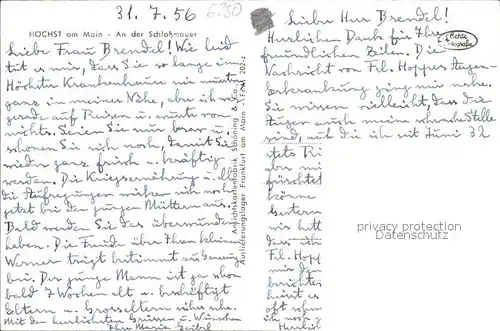 31. 7. 56
6230
HÖCHST am Main - An der Schloßmauer
Liebe Frau Brendel! Wie leid
tut es mir, dass Sie so lange im
Höchster Krankenhaus sein mussten
ganz in meiner Nähe, aber ich war
gerade auf Reisen u. wusste von
nichts. Seien Sie nur brav u.
schonen Sie sich noch, damit Sie
wieder ganz frisch u. kräftig
werden. Die Kriegsernährung u. all
die Aufregungen wirken sich noch
jetzt bei den jungen Müttern aus.
Bald werden Sie das überwunden
haben. Die Freude über Ihren kleinen
Werner trägt bestimmt zu Genesung
bei. Der junge Mann ist ja schon
bald 7 Wochen alt u. beschäftigt
Eltern u. Grosseltern
Mit den herzlichsten Grüssen u. Wünschen
Ihre Maria
Ansichtskartenfabrik Schöning & Co.
Auslieferungslager Frankfurt am Main
Lieber Herr Brendel!
Herzlichen Dank für Ihre
freundlichen Zeilen. Die
Nachricht von Frl. Hoppes Augen-
erkrankung ging mir nahe.
Sie wissen vielleicht, dass die
Augen auch meine schwache Stelle
sind, auf die ich seit Juni 32
stets
aber
gestern
mir
dass
Frl. Hopp
mir
berichtet
hört es
oft
ich noch
Herzlich
Echte Fotografie
privacy protection
Datenschutz